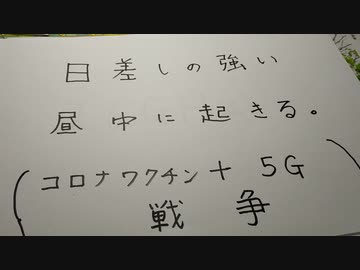 日差しの強い
昼中に起きる。
(コロナワクチン+5G)
戦争